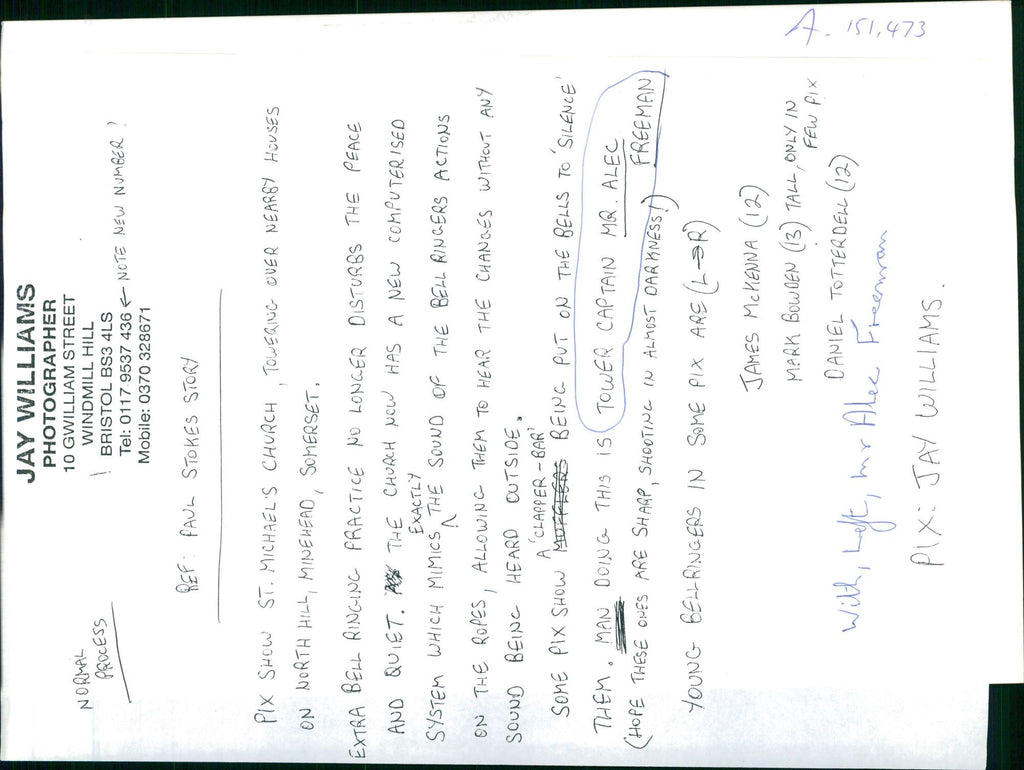 JAY WILLIAMS
PHOTOGRAPHER
10 GWILLIAM STREET
WINDMILL HILL
BRISTOL BS3 4LS
Tel: 0117 9537 436 ← NOTE NEW NUMBER!
Mobile: 0370 328671
NORMAL
PROCESS
REF: PAUL STOKES STORY
PIX SHOW ST. MICHAEL'S CHURCH, TOWERING OVER NEARBY HOUSES
ON NORTH HILL, MINEHEAD, SOMERSET.
EXTRA BELL RINGING PRACTICE NO LONGER DISTURBS THE PEACE
AND QUIET. THE CHURCH NOW HAS A NEW COMPUTERISED
SYSTEM WHICH MIMICS EXACTLY THE SOUND OF THE BELLRINGERS ACTIONS
ON THE ROPES, ALLOWING THEM TO HEAR THE CHANGES WITHOUT ANY
SOUND BEING HEARD OUTSIDE.
SOME PIX SHOW A 'CLAPPER-BAR' BEING PUT ON THE BELLS TO 'SILENCE'
THEM. MAN DOING THIS IS TOWER CAPTAIN MR. ALEC
FREEMAN
(HOPE THESE ONES ARE SHARP, SHOOTING IN ALMOST DARKNESS!)
YOUNG BELLRINGERS IN SOME PIX ARE (L→R)
JAMES McKENNA (12)
MARK BOWDEN (13) TALL, ONLY IN
FEW PIX
DANIEL TOTTERDELL (12)
With, Left, mr Alec Freeman
PIX: JAY WILLIAMS.
A. 151,473